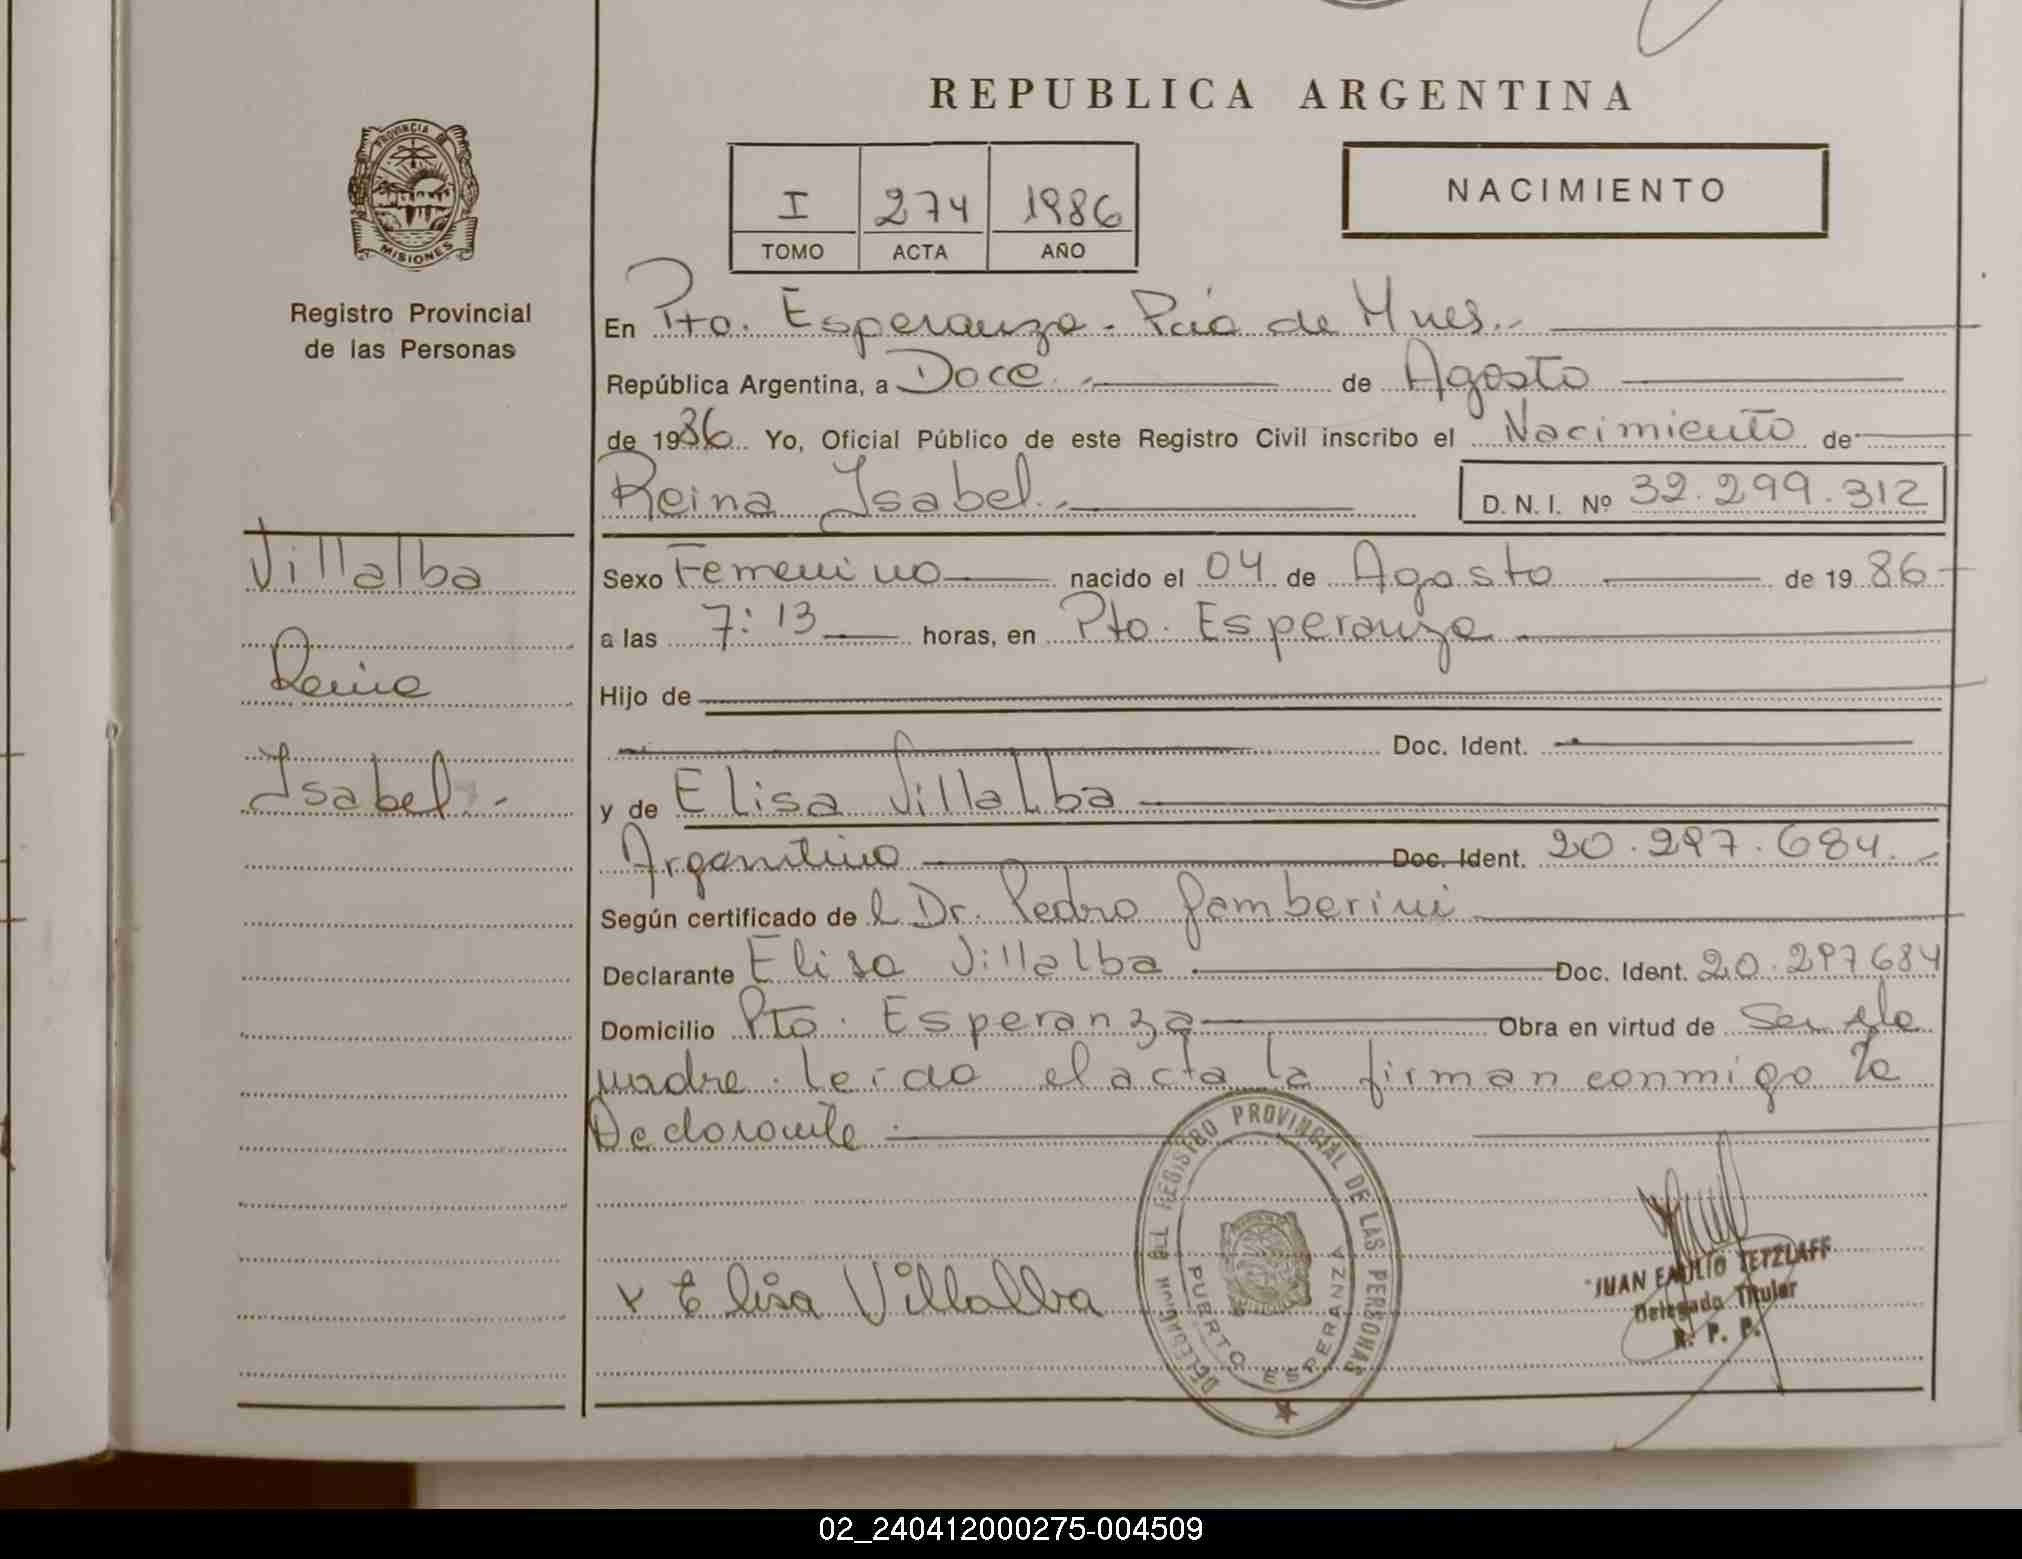 REPUBLICA ARGENTINA
PROVINCIA DE
MISIONES
Registro Provincial
de las Personas
I 274 1986
TOMO ACTA AÑO
NACIMIENTO
En Pto. Esperanza. Pcia de Mnes.-
República Argentina, a Doce.- de Agosto
de 1986. Yo, Oficial Público de este Registro Civil inscribo el Nacimiento de
Reina Isabel.- D. N. I. Nº 32.299.312
Villalba
Reina
Isabel.-
Sexo Femenino nacido el 04 de Agosto de 1986
a las 7:13 horas, en Pto. Esperanza
Hijo de
Doc. Ident.
y de Elisa Villalba
Argentina Doc. Ident. 20.297.684.-
Según certificado de l Dr. Pedro Gamberini
Declarante Elisa Villalba Doc. Ident. 20.297684
Domicilio Pto. Esperanza Obra en virtud de Ser la
madre. Leida el acta la firman conmigo la
Declarante
x Elisa Villalba
DELEGACION DEL REGISTRO PROVINCIAL DE LAS PERSONAS
PUERTO ESPERANZA
JUAN EMILIO TETZLAFF
Delegado Titular
R. P. P.
02_240412000275-004509